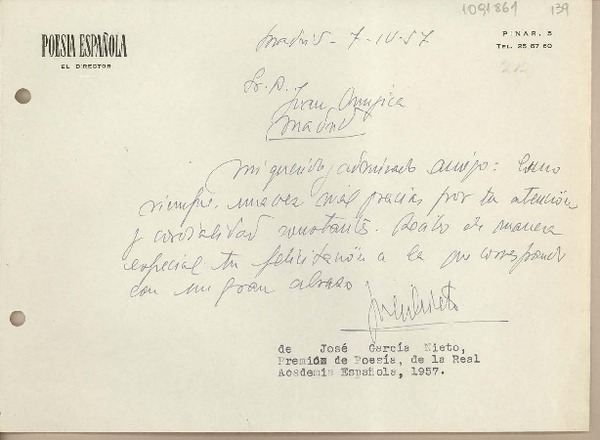 1091861 139
POESIA ESPAÑOLA
EL DIRECTOR
Madrid - 7-IV-57
PINAR, 5
TEL. 25 67 60
212
Sr. D.
Juan Mujica
Madrid
Mi querido y admirado amigo: Como
siempre, una vez más gracias por tu atención
y cordialidad constante. Recibo de manera
especial tu felicitación a la que correspondo
con un gran abrazo
José G Nieto
de José García Nieto,
Premión de Poesía, de la Real
Academia Española, 1957.